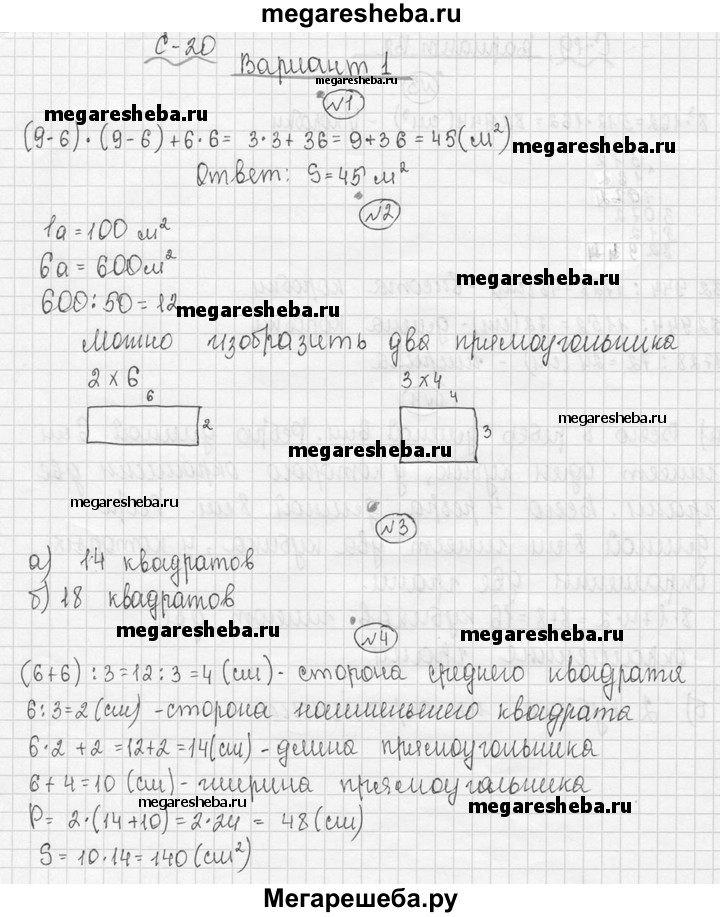 megaresheba.ru
С-20
Вариант 1
megaresheba.ru
№1
megaresheba.ru
(9-6)·(9-6)+6·6= 3·3+36=9+36=45(м²)
megaresheba.ru
Ответ: S=45 м²
№2
1а=100 м²
6а=600м²
megaresheba.ru
600:50=12
megaresheba.ru
Можно изобразить два прямоугольника
2 х 6
3 х 4
6
2
4
3
megaresheba.ru
megaresheba.ru
megaresheba.ru
№3
а) 14 квадратов
б) 18 квадратов
megaresheba.ru
№4
megaresheba.ru
(6+6):3=12:3=4 (см)- сторона среднего квадрата
6:3=2(см) -сторона наименьшего квадрата
6·2+2=12+2=14(см)-длина прямоугольника
6+4=10 (см)-ширина прямоугольника
megaresheba.ru
megaresheba.ru
P= 2·(14+10)=2·24= 48(см)
S=10·14=140(см²)
megaresheba.ru
Мегарешеба.ру